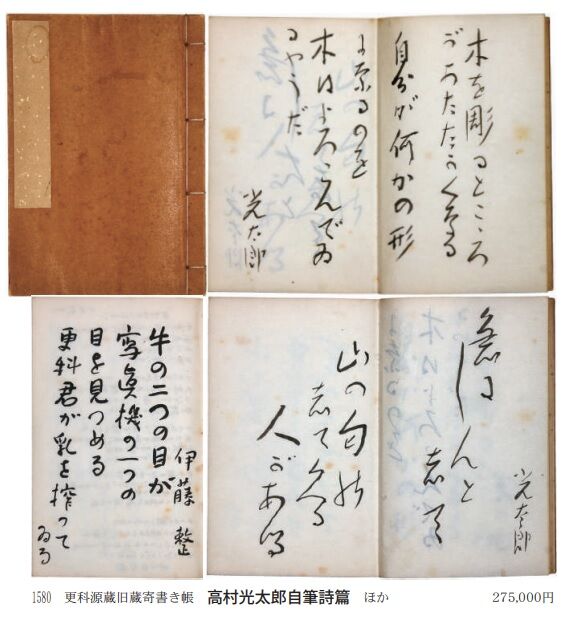 木を彫るとこころ
があたたかくなる
自分が何かの形
になるのを
木はよろこんでゐ
るやうだ
光太郎
伊藤 整
牛の二つの目が
寫眞機の一つの
目を見つめる
更科君が乳を搾つて
ゐる
光太郎
急に
しんと
して
山の匂の
してくる
人がある
1580 更科源蔵旧蔵寄書き帳 高村光太郎自筆詩篇 ほか 275,000円